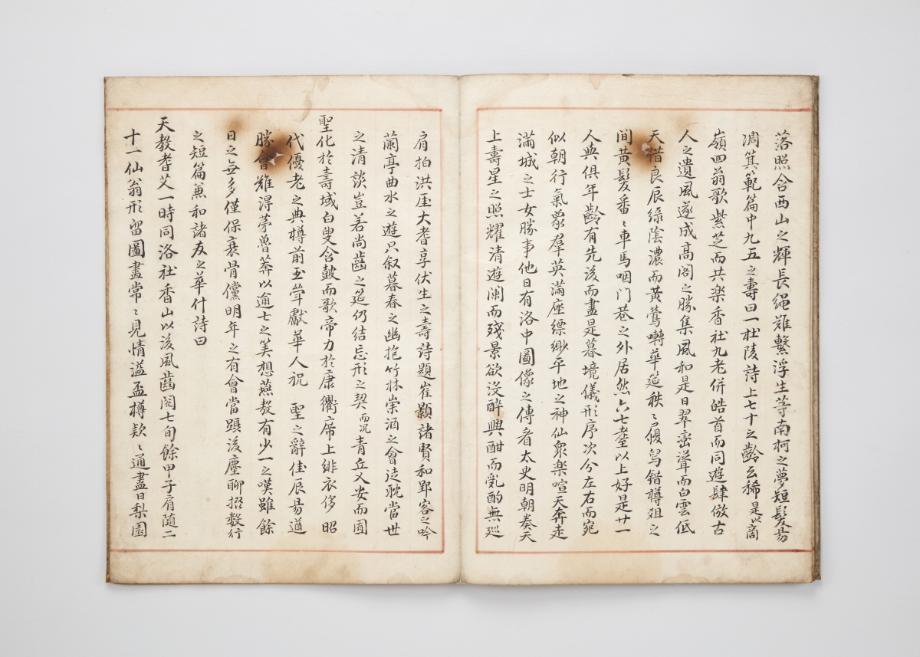 落照含西山之輝長繩難繫浮生等南柯之夢短髮易
凋箕範篇中九五之壽曰一杜陵詩上七十之齡云稀是以商
嶺四翁歌紫芝而共樂香社九老併皓首而同遊肆倣古
人之遺風遂成高閣之勝集風和是日翠巒聳而白雲低
天借良辰綠陰濃而黃鶯囀華筵秩〻履舃錯樽俎之
間黃髮番〻車馬咽門巷之外居然六七耋以上好是廿一
人與俱年齡有先後而盡是暮境儀形序次分左右而宛
似朝行氣蒙群英滿座縹緲平地之神仙衆樂喧天奔走
滿城之士女勝事他日有洛中圖像之傳看太史明朝奏天
上壽星之照耀清遊闌而殘景欲沒醉興酣而亂酌無巡
肩拍洪厓大耋享伏生之壽詩題崔顥諸賢和郢客之吟
蘭亭曲水之遊只叙暮春之幽抱竹林崇酒之會徒耽當世
之清談豈若尚齒之筵仍結忘形之契而況靑丘乂安而囿
聖化於壽域白叟含鼓而歌帝力於康衢席上緋衣侈 昭
代優老之典樽前玉斝獻華人祝 聖之辭佳辰易遒
勝會難得夢魯莽以逾七之美想燕毅有少一之嘆雖餘
日之無多僅保衰骨儻明年之有會當躡後塵聊搭數行
之短篇兼和諸友之華什詩曰
天敎耆艾一時同洛社香山以後風齒閣七旬餘甲子肩隨二
十一仙翁形留圖畫常〻見情溢盃樽款〻通盡日梨園